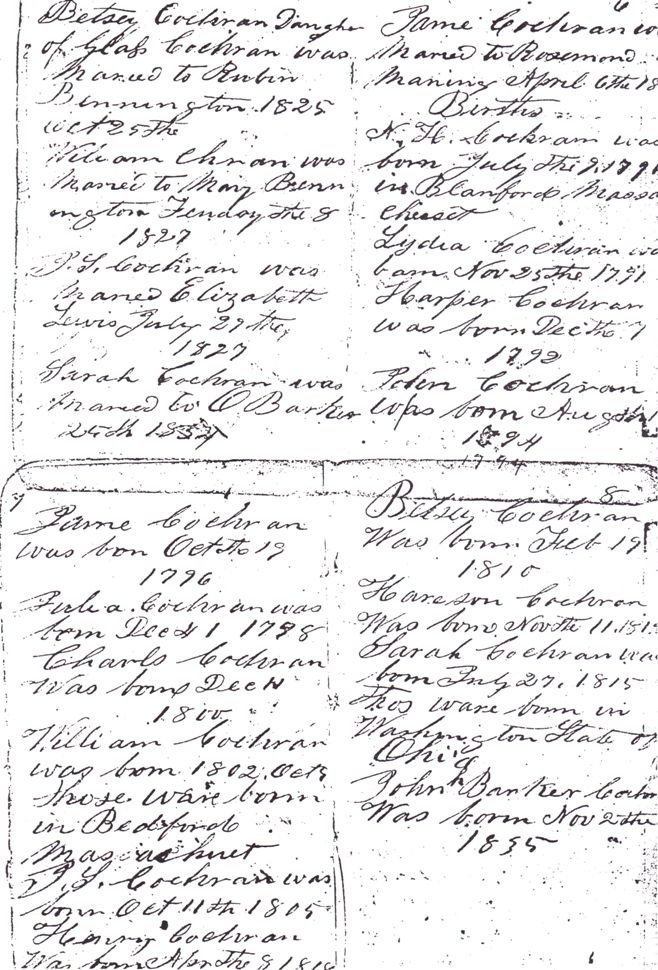 Betsey Cochran Daughe
of Glass Cochran was
Maried to Rubin
Bennington 1825
Oct 25 the
William Chran was
Maried to Mary Benn
ington the 8
1827
P. S. Cochran was
Maried Elizabeth
Lewis July 29 the
1827
Sarah Cochran was
Maried to O Barker
25 th
6
Jame Cochran w
Maried to Rosemond
Maning April 6the 18
Births
N. H. Cochran was
born July the 9. 1791
in Blanford Massa
chuset
Lydia Cochran wa
born Nov 25 the 1791
Harper Cochran
was born Dec the 7
1792
John Cochran
was born Aug
1794
1794
7
Jame Cochran
was bon Oct the 19
1796
Julia Cochran was
born Dec 1 1798
Charls Cochran
Was born Dec
1800
William Cochran
was born 1802 Oct
those ware born
in Bedford
Massachuet
P. S. Cochran was
born Oct 11 th 1805
Henry Cochran
Was born Apr the 8
8
Betsey Cochran
Was born Feb 19
1810
Hareson Cochran
Was born Nov the 11. 181
Sarah Cochran wa
born July 27, 1815
thos ware born in
Washington State of
Ohio
John Barker Cochr
Was born Nov 2 the
1835